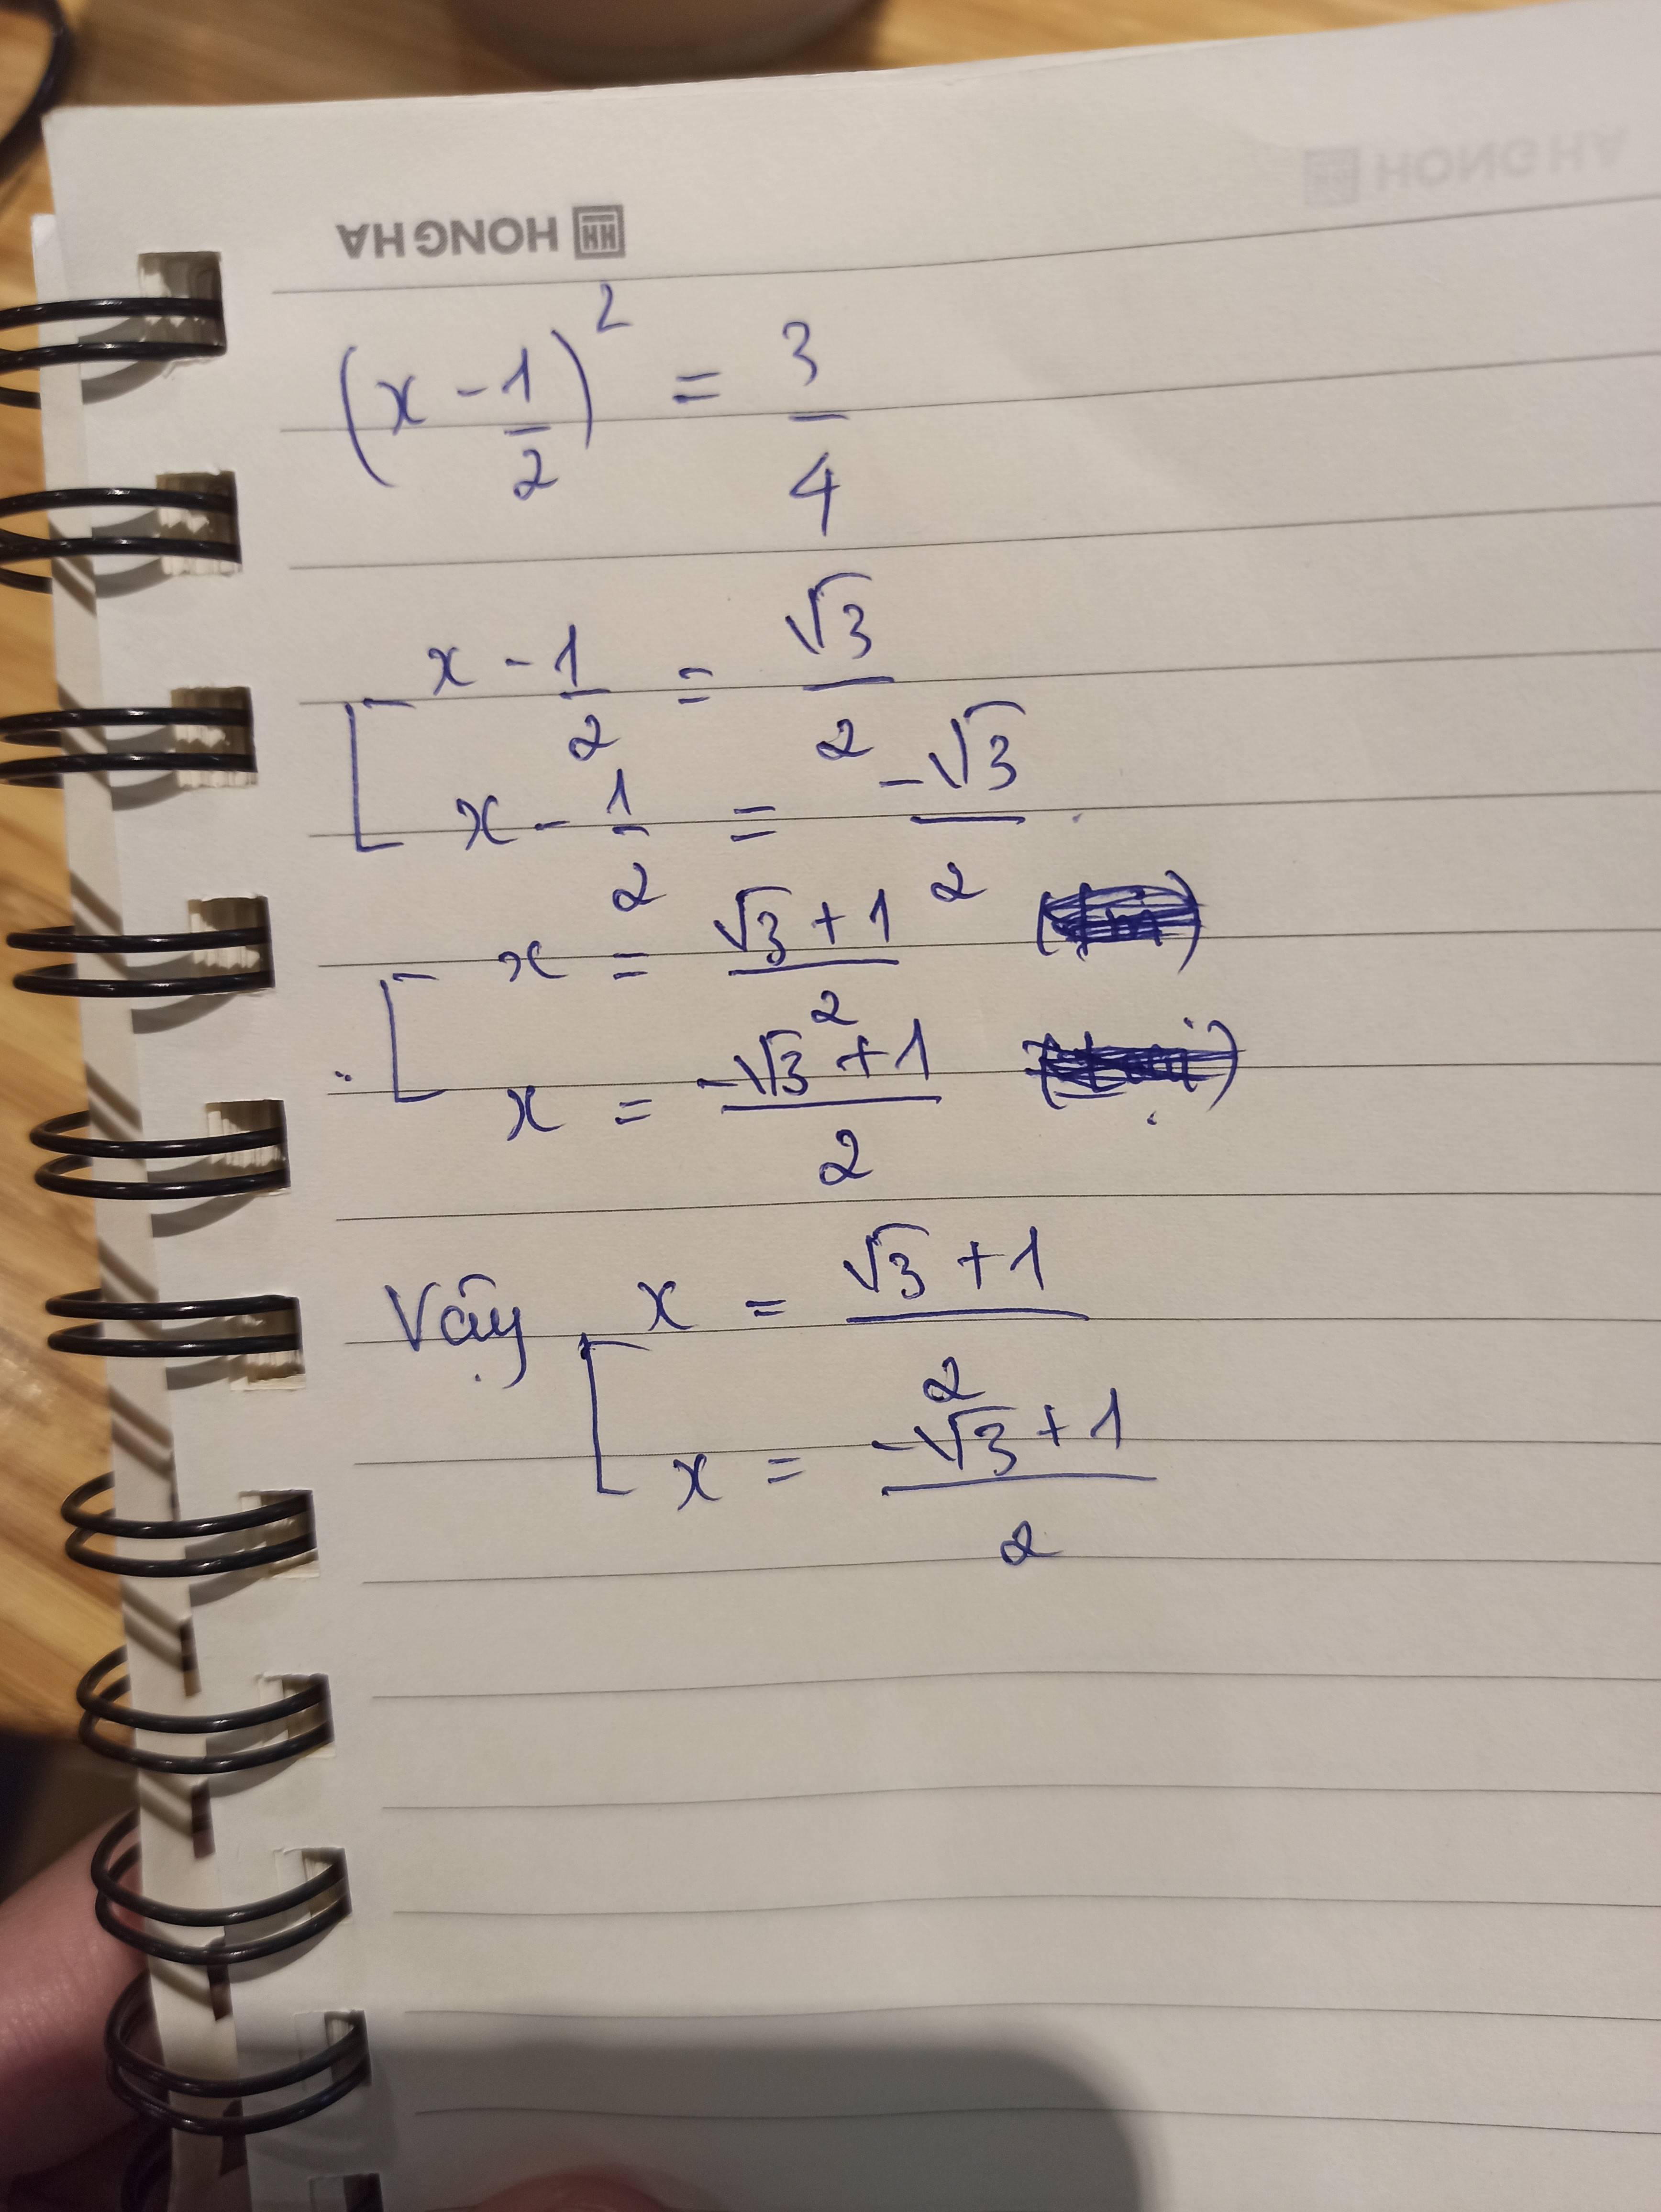 HONG HA
HONG HA
(x - 1/2)² = 3/4
[ x - 1/2 = √3/2
x - 1/2 = -√3/2
[ x = (√3 + 1)/2
x = (-√3 + 1)/2
Vậy [ x = (√3 + 1)/2
x = (-√3 + 1)/2